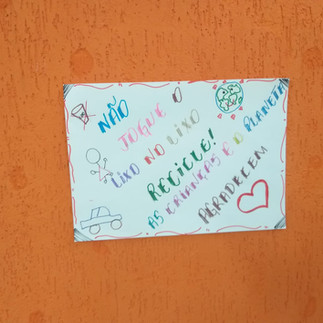 NÃO
JOGUE O
LIXO NO LIXO
RECICLE!
AS CRIANÇAS E O PLANETA
AGRADECEM